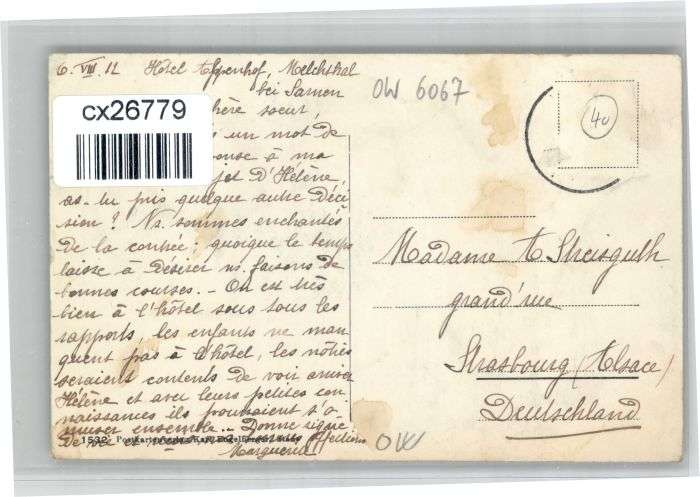 6. VIII. 12 Hôtel Alpenhof, Melchthal
bei Sarnen
OW 6067
40
cx26779
chère soeur,
un mot de
à ma
d'Hélène,
as-tu pris quelque autre déci
sion? Ns. sommes enchantés
de la contrée; quoique le temps
laisse à désirer ns. faisons de
bonnes courses. - On est très
bien à l'hôtel sous tous les
rapports, les enfants ne man
quent pas à l'hôtel, les nôtres
seraient contents de voir arriver
Hélène et avec leurs petites con
naissances ils pourraient s'a
muser ensemble. - Donne signe
de vie et
Marguerite
1532
Madame A
grand'rue
Strasbourg (Alsace)
Deutschland
OW